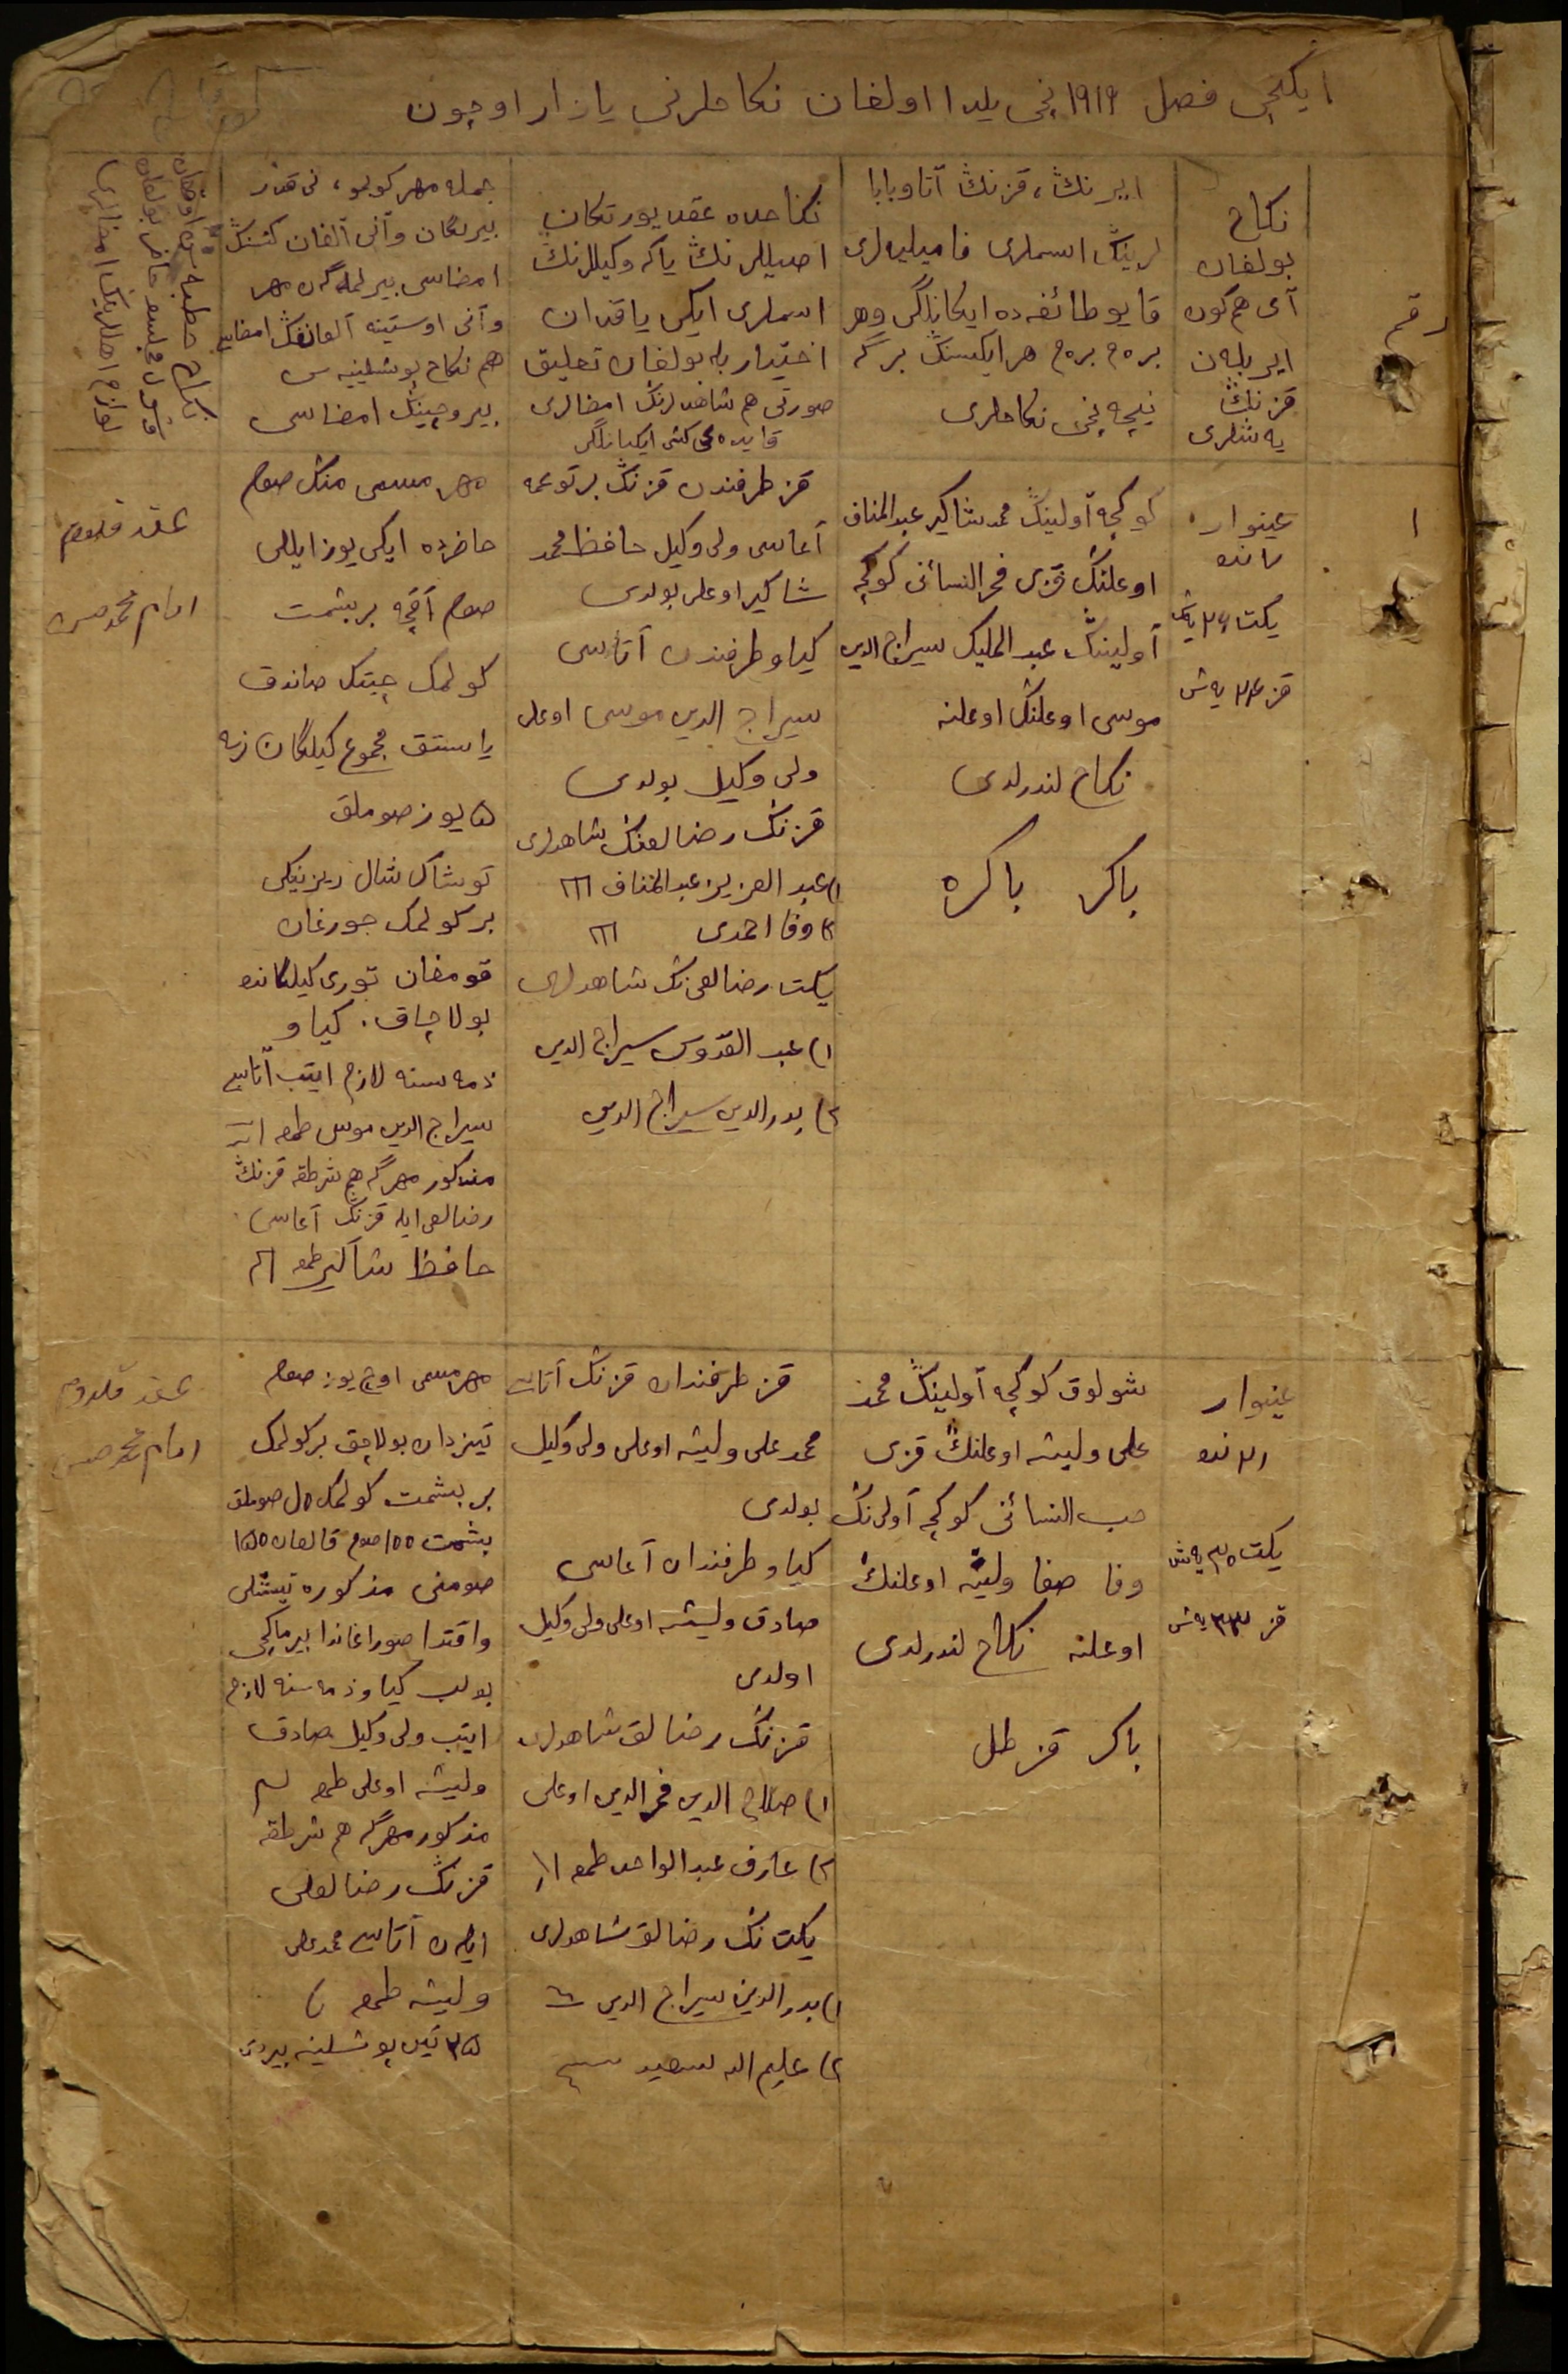 ایکنچی فصل ۱۹۱۹ نچی یلدا اولغان نکاحلرنی یازار اوچون
رقم
نکاح
بولغان
آی هم کون
ایر بلەن
قزنڭ
یەشلری
ایرنڭ، قزنڭ آتا و بابا
لرینڭ اسملری فامیلیەلری
قایو طائفەدە ایکانلگی وهر
برەم برەم هر ایکیسنڭ برگە
نیچە نچی نکاحلری
نکاحدە عقد یورتکان
اصیللرنڭ یاکە وکیللرنڭ
اسملری ایکی یاقدان
اختیار بلە بولغان تعلیق
صورتی هم شاهدلرنڭ امضالری
قایدەغی کشی ایکانلگی
جملە مهر کوبمو، نی قدر
بیرلگان وآنی آلغان کشینڭ
امضاسی بیرلمەگەن مهر
وآنی اوستینە آلغاننڭ امضاسی
هم نکاح پوشلینەسی
بیروچینڭ امضاسی
نکاح خطبەسن اوقغان
۱
غینوار
۷ نده
یکت ۲۶ یاش
قز ۲۴ یەش
کوکچە آولینڭ محمد شاکیر عبدالمناف
اوغلنڭ قزی فخرالنسانی کوکچە
آولینڭ عبدالملیک سیراج الدین
موسی اوغلنڭ اوغلنە
نکاح لندرلدی
باکر باکرە
قز طرفندن قزنڭ برتوغمە
آغاسی ولی وکیل حافظ محمد
شاکیر اوغلی بولدی
کیاو طرفندن آتاسی
سیراج الدین موسی اوغلی
ولی وکیل بولدی
قزنڭ رضالغنڭ شاهدلری
۱) عبدالعزیز عبدالمناف
۲) وفا احمدی
یکت رضالغی نڭ شاهدلری
۱) عبدالقدوس سیراج الدین
۲) بدرالدین سیراج الدین
مهر مسمی منڭ صوم
حاضردە ایکی یوز ایللی
صوم آقچە بر بشمت
کولمک چیتک صاندق
یاستق مجموع کیلگان نرسە
۵ یوز صوملق
توشاک شال ریزینیکی
بر کولمک جورغان
قومغان توری کیلگاندە
بولاچاق. کیاو
ذمەسنە لازم ایتب آتاسی
سیراج الدین موسی طمغە
مذکور مهرگە هم شرطقە قزنڭ
رضالغی ایلە قزنڭ آغاسی
حافظ شاکیر طمغە
عقد قلدم
امام محمد
غینوار
۲۱ نده
یکت ۳۵ یەش
قز ۲۳ یەش
شولوق کوکچە آولینڭ محمد
علی ولیشە اوغلنڭ قزی
حب النسانی کوکچە آولی نڭ
وفا صفا ولیشە اوغلنڭ
اوغلنە نکاح لندرلدی
باکر قز طل
قز طرفندان قزنڭ آتاسی
محمد علی ولیشە اوغلی ولی وکیل
بولدی
کیاو طرفندان آغاسی
صادق ولیشە اوغلی ولی وکیل
اولدی
قزنڭ رضالق شاهدلری
۱) صلاح الدین فخرالدین اوغلی
۲) عارف عبدالواحد طمغە
یکت نڭ رضالق شاهدلری
۱) بدرالدین سیراج الدین
۲) علیم الله سعید
مهر مسمی اوچ یوز صوم
تیزدان بولاچق بر کولمک
بر بشمت کولمک ۵۰ صوملق
بشمت ۱۰۰ صوم قالغان ۱۵۰
صومنی مذکورە تیشلی
واقتدا صوراغاندا بیرماکچی
بولب کیاو ذمەسنە لازم
ایتب ولی وکیل صادق
ولیشە اوغلی طمغە
مذکور مهرگە هم شرطقە
قزنڭ رضالغی
ایلەن آتاسی محمدعلی
ولیشە طمغە
۲۵ تین پوشلینە بیردی
عقد قلدم
امام محمد